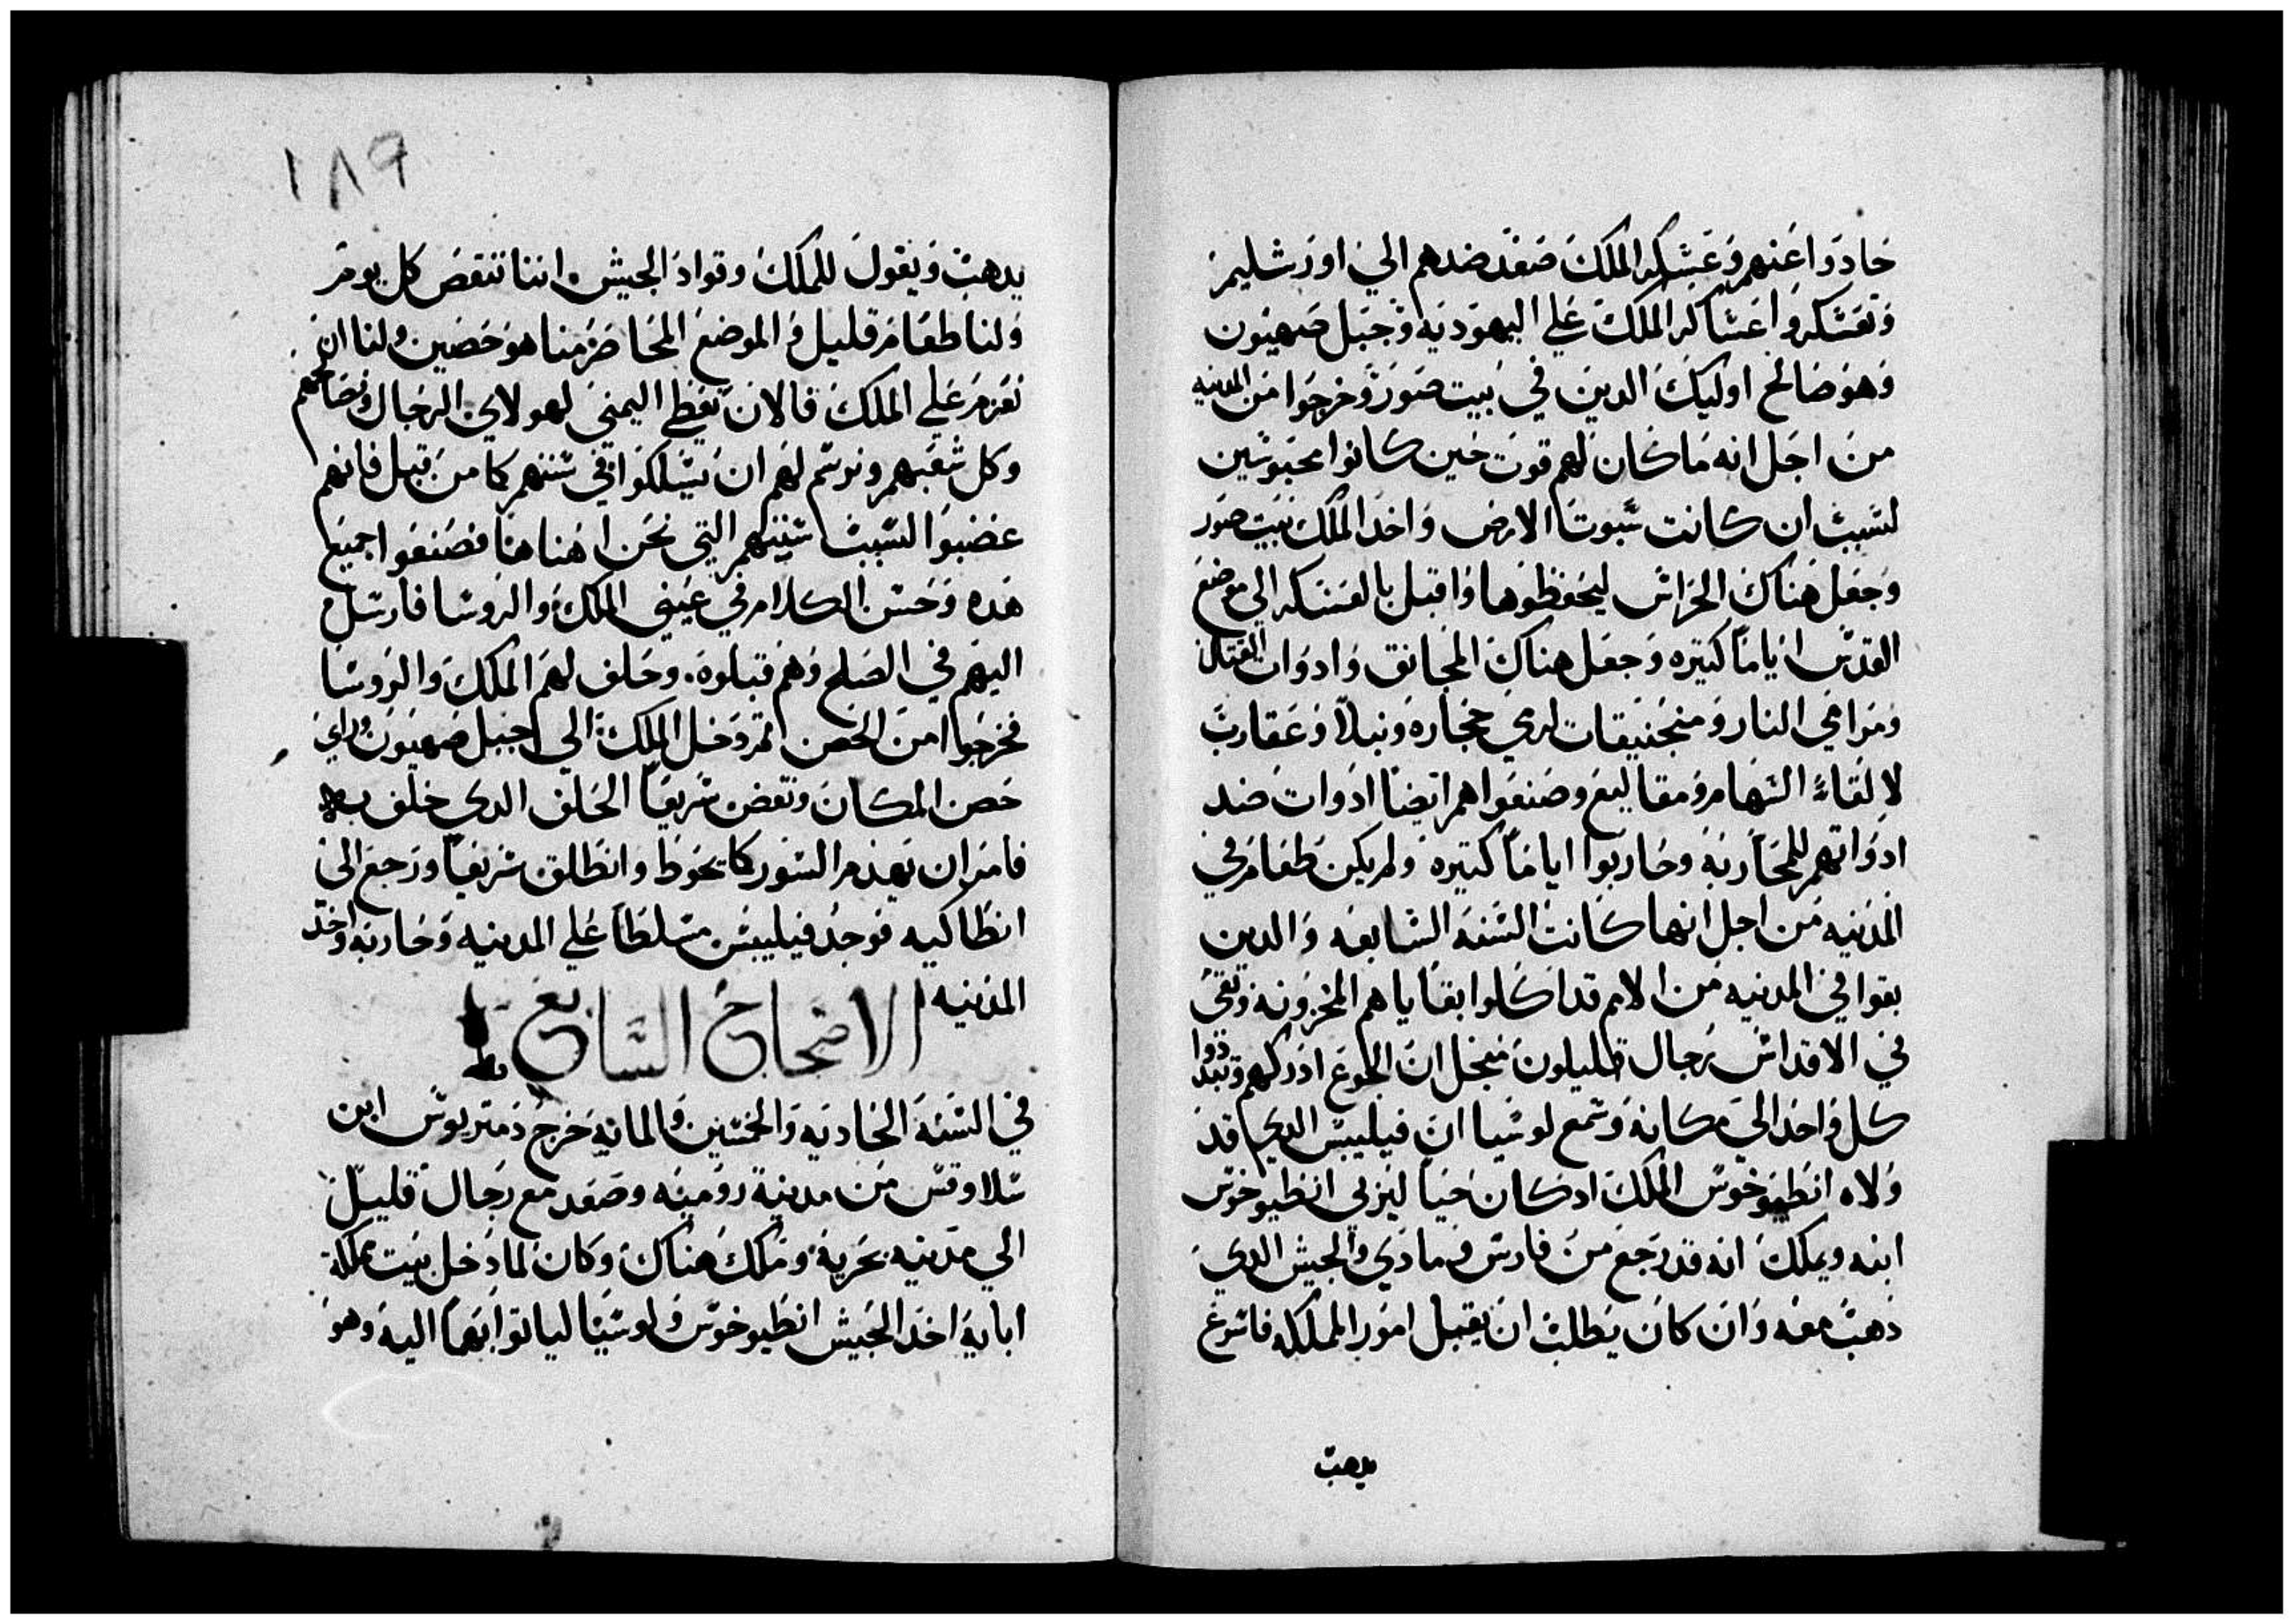 حادوا عنهم وعسكر الملك صعد ضدهم الي اورشليم
وتعسكروا عساكر الملك علي اليهوديه وجبل صهيون
وهو صالح اوليك الدين في بيت صور وخرجوا من المدينه
من اجل انه ما كان لهم قوت حين كانوا محبوسين
لسبب ان كانت سبوتا الارض واخد الملك بيت صور
وجعل هناك الحراس ليحفظوها واقبل بالعسكر الي موضع
القدس اياماً كتيره وجعل هناك المجانق وادوات القتال
ومرامي النار ومنجنيقات لرمي حجاره ونبلاً وعقارب
لالقاء السهام ومقاليع وصنعوا هم ايضاً ادوات ضد
ادواتهم للمحاربه وحاربوا اياماً كتيره ولم يكن طعام في
المدينه من اجل انها كانت السنه السابعه والدين
بقوا في المدينه من الامم قد اكلوا بقاياهم المخزونه وبقي
في الاقداس رجال قليلون منجل ان الجوع ادركهم وتبددوا
كل واحد الي مكانه وسمع لوسيا ان فيليبس الدي قد
ولاه انطيوخوس الملك اد كان حياً ليربي انطيوخوس
ابنه ويملك انه قد رجع من فارس ومادي والجيش الدي
دهب معه وان كان يطلب ان يقبل امور المملكه فاسرع
يدهب
١٨٩
يدهب ويقول للملك وقواد الجيش اننا ننقص كل يوم
ولنا طعام قليل والموضع المحاصر منا هو حصين ولنا ان
نعزم علي الملك فالان نعطي اليمني لهولاي الرجال ونصالحهم
وكل شعبهم ونرسم لهم ان يسلكوا في سننهم كما من قبل فانهم
غضبوا لسبب سننهم التي نحن اهناها فصنعوا جميع
هده وحسن الكلام في عيني الملك والروسا فارسل
اليهم في الصلح وهم قبلوه. وحلف لهم الملك والروسا
فخرجوا من الحصن تم دخل الملك الي جبل صهيون وراي
حصن المكان ونقض سريعاً الحلف الدي حلف به
فامر ان يهدم السور كما يحوط وانطلق سريعاً ورجع الي
انطاكيه فوجد فيليبس مسلطاً علي المدينه وحاربه واخد
المدينه
الاصحاح السابع
في السنه الحاديه والخمسين والمايه خرج دمتريوس ابن
سلاوقس من مدينة روميه وصعد مع رجال قليل
الي مدينه بحرية وملك هناك وكان لما دخل بيت مملكة
ابايه اخد الجيش انطيوخوس ولوسيا لياتوا بهما اليه وهو